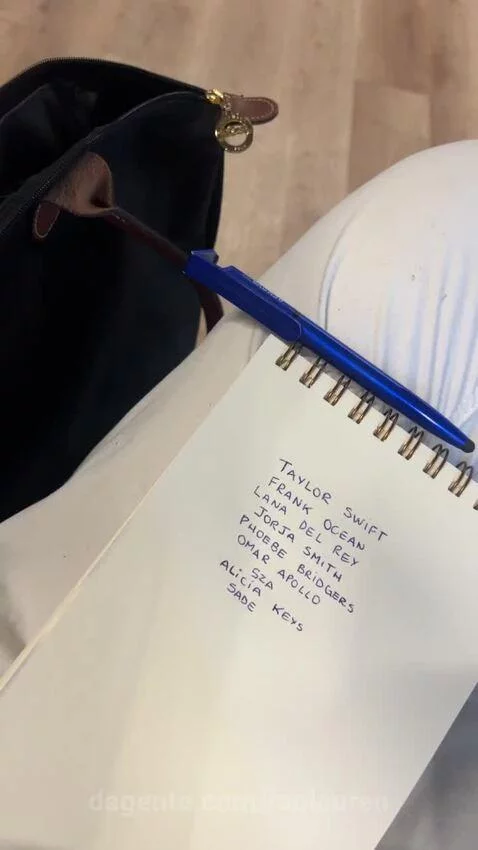 TAYLOR SWIFT
FRANK OCEAN
LANA DEL REY
JORJA SMITH
PHOEBE BRIDGERS
OMAR APOLLO
SZA
ALiCiA KEYS
SADE